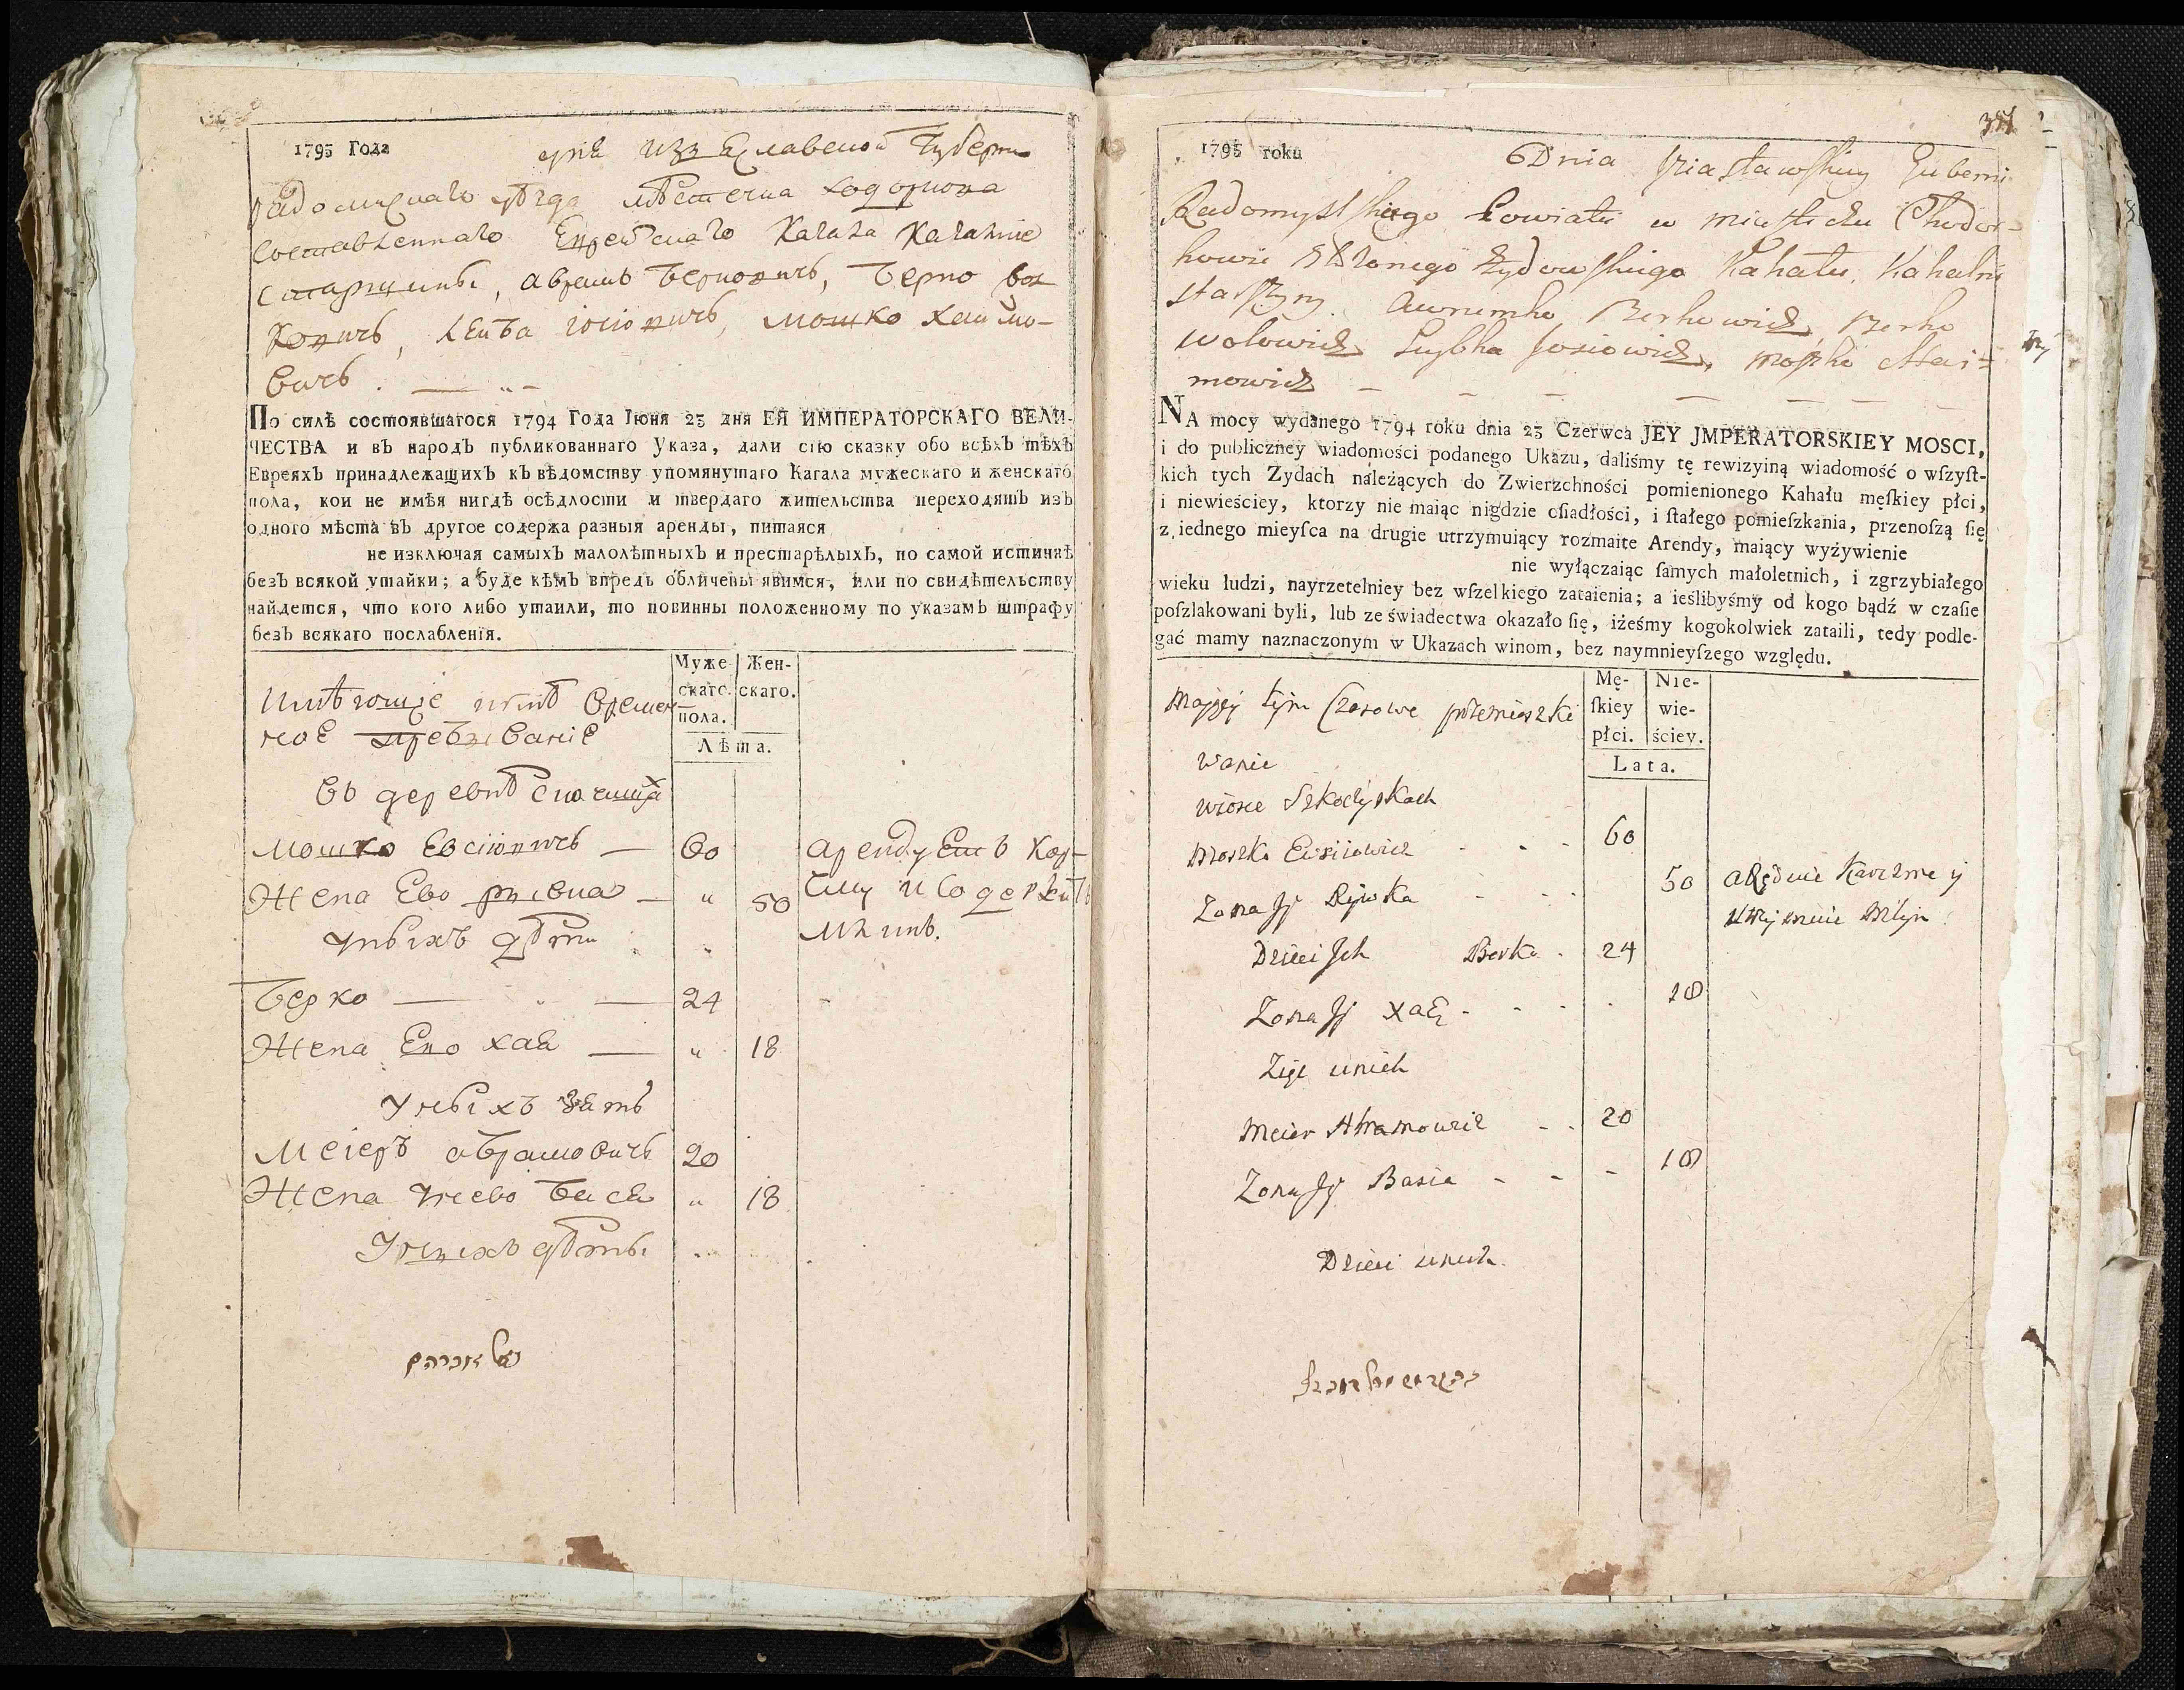 1795 Года дня Изяславской Губерни
Радомысльскаго уѣзда мѣстечка Ходоркова
составленнаго Еврейскаго Кагала Кагалние
старшины, Аврамъ Берковичъ, Берко Вол
ковичъ, Лейба Иосиовичъ, Мошко Хаимо-
вичъ.
По силѣ состоявшагося 1794 Года Іюня 23 дня ЕЯ ИМПЕРАТОРСКАГО ВЕЛИ-
ЧЕСТВА и въ народъ публикованнаго Указа, дали сію сказку обо всѣхъ тѣхъ
Евреяхъ принадлежащихъ къ вѣдомству упомянутаго Кагала мужескаго и женскаго
пола, кои не имѣя нигдѣ осѣдлости и твердаго жительства переходятъ изъ
одного мѣста въ другое содержа разныя аренды, питаяся
не изключая самыхъ малолѣтныхъ и престарѣлыхъ, по самой истиннѣ
безъ всякой утайки; а буде кѣмъ впредь обличены явимся, или по свидѣтельству
найдется, что кого либо утаили, то повинны положенному по указамъ штрафу
безъ всякаго послабленія.
Муже-скаго пола. Жен-скаго.
Лѣта.
Имѣющіе нынѣ времен
ное пребываніе
въ деревнѣ
Мошко Евсіовичъ — 60 арендуетъ кор-
Жена Ево Рывка — " 50 чму и содержитъ
унихъ дѣти млинъ.
Берко — 24
Жена Ево Хая — " 18
Унихъ зать
Меіеръ Абрамовичъ 20
Жена унево Бася " 18
Унихъ дѣты
1795 roku 6 Dnia Iziasławskiey Guberni
Radomyslskiego Powiatu w miasteczku Chodor=
kowie złożonego Żydowskiego Kahału, Kahalni
starszyny. Awrumko Berkowicz, Berko
Wolowicz Leybka Josiowicz, Moszko Chai=
mowicz
NA mocy wydanego 1794 roku dnia 23 Czerwca JEY JMPERATORSKIEY MOSCI,
i do publiczney wiadomości podanego Ukazu, daliśmy tę rewizyiną wiadomość o wſzyſt-
kich tych Zydach należących do Zwierzchności pomienionego Kahału męſkiey płci,
i niewieściey, ktorzy nie maiąc nigdzie oſiadłości, i ſtałego pomieſzkania, przenoſzą ſię
z iednego mieyſca na drugie utrzymuiący rozmaite Arendy, maiący wyżywienie
nie wyłączaiąc ſamych małoletnich, i zgrzybiałego
wieku ludzi, nayrzetelniey bez wſzelkiego zataienia; a ieślibyśmy od kogo bądź w czaſie
poſzlakowani byli, lub ze świadectwa okazało ſię, iżeśmy kogokolwiek zataili, tedy podle-
gać mamy naznaczonym w Ukazach winom, bez naymnieyſzego względu.
Mę-ſkiey płci. Nie-wie-ściey.
Lata.
Mający tym Czasowe przemieszki
wanie
wiosce Szkodyskach
Moszko Ewsiiowicz 60
Zona Jj Rywka 50 aręduie Karczme y
utrzymuie Młyn.
Dzieci Jch Berko 24
Zona Jj Хая 18
Zięć unich
Meier Abramowicz 20
Zona Jj Basia 18
Dzieci unich